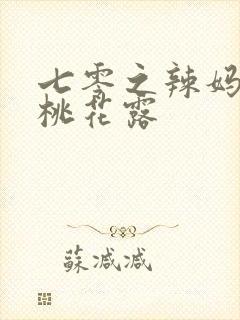 七零之辣妈
桃花露
蘇减减